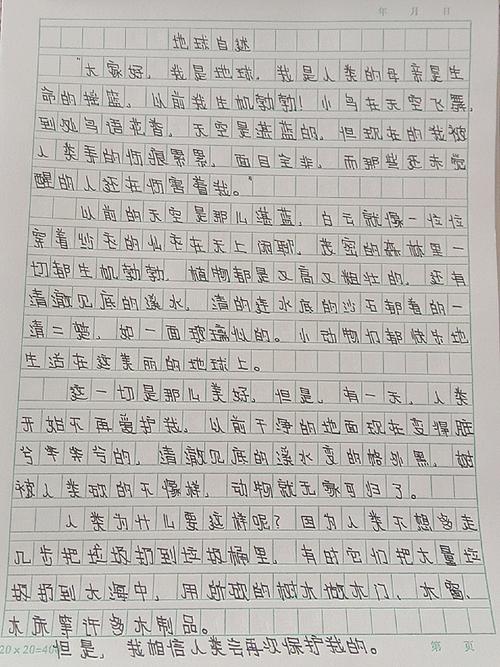 年 月 日
地球自述
“大家好，我是地球，我是人类的母亲是生
命的摇篮。以前我生机勃勃！小鸟在天空飞翔，
到处鸟语花香。天空是湛蓝的。但现在的我被
人类弄的伤痕累累，面目全非。而那些还未觉
醒的人还在伤害着我。”
以前的天空是那么湛蓝，白云就像一位位
穿着纱衣的仙子在天上闲聊。茂密的森林里一
切都生机勃勃，植物都是又高又粗壮的。还有
清澈见底的溪水。清的连水底的沙石都看的一
清二楚，如一面玻璃似的。小动物们都快乐地
生活在这美丽的地球上。
这一切是那么美好，但是，有一天，人类
开始不再爱护我。以前干净的地面现在变得脏
兮兮的，清澈见底的溪水变的格外黑，树
被人类砍的不像样，动物就无家可归了。
人类为什么要这样呢？因为人类不想多走
几步把垃圾扔到垃圾桶里。有时它们把大量垃
圾扔到大海中，用所砍的树木做木门、木窗、
木床等许多木制品。
但是，我相信人类会再次保护我的。
20×20=40 第 页